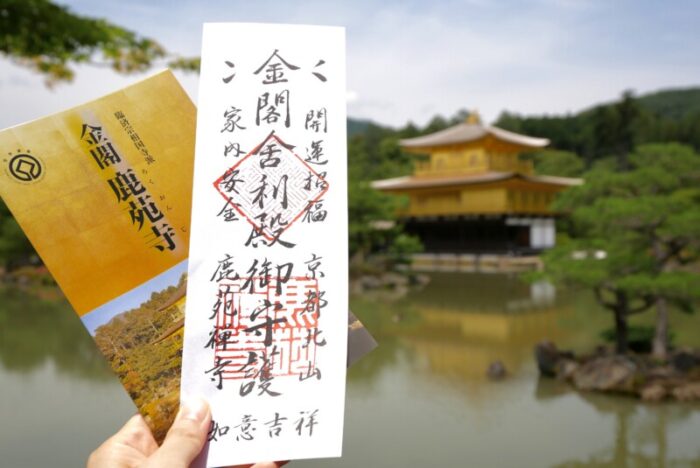 臨済宗相国寺派
金閣 鹿苑寺
ろくおんじ
開運招福 京都北山
金閣舎利殿御守護
家内安全 鹿苑禪寺
如意吉祥